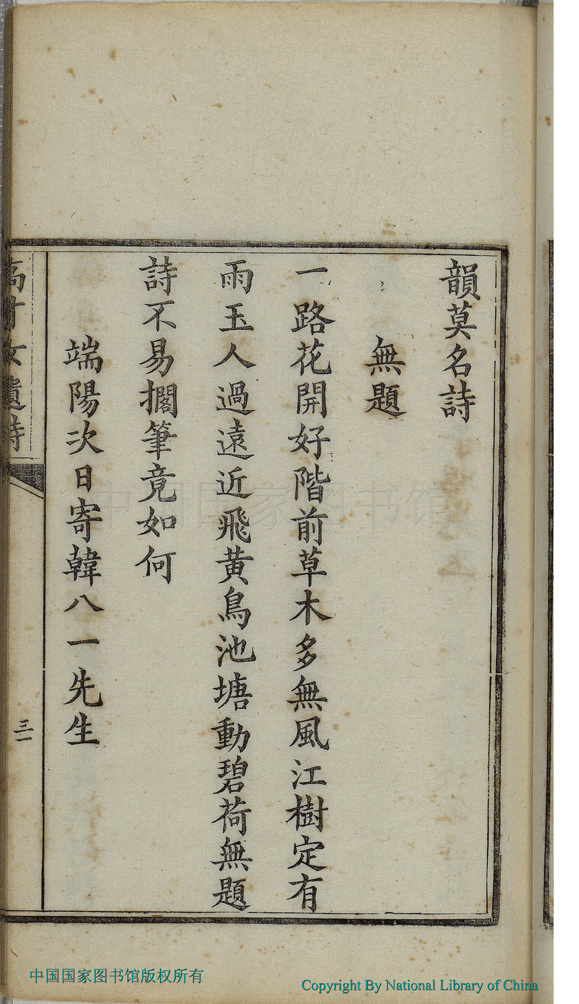 韻莫名詩
無題
一路花開好階前草木多無風江樹定有
雨玉人過遠近飛黄鳥池塘動碧荷無題
詩不易擱筆竟如何
端陽次日寄韓八一先生
高才女遺詩
三一
中国国家图书馆
中国国家图书馆版权所有
Copyright By National Library of China